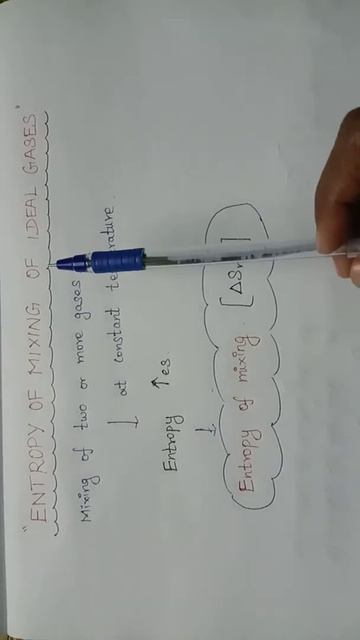 "ENTROPY OF MIXING OF IDEAL GASES"
Mixing of two or more gases
↓ at constant
Entropy ↑es
↓
Entropy of mixing.